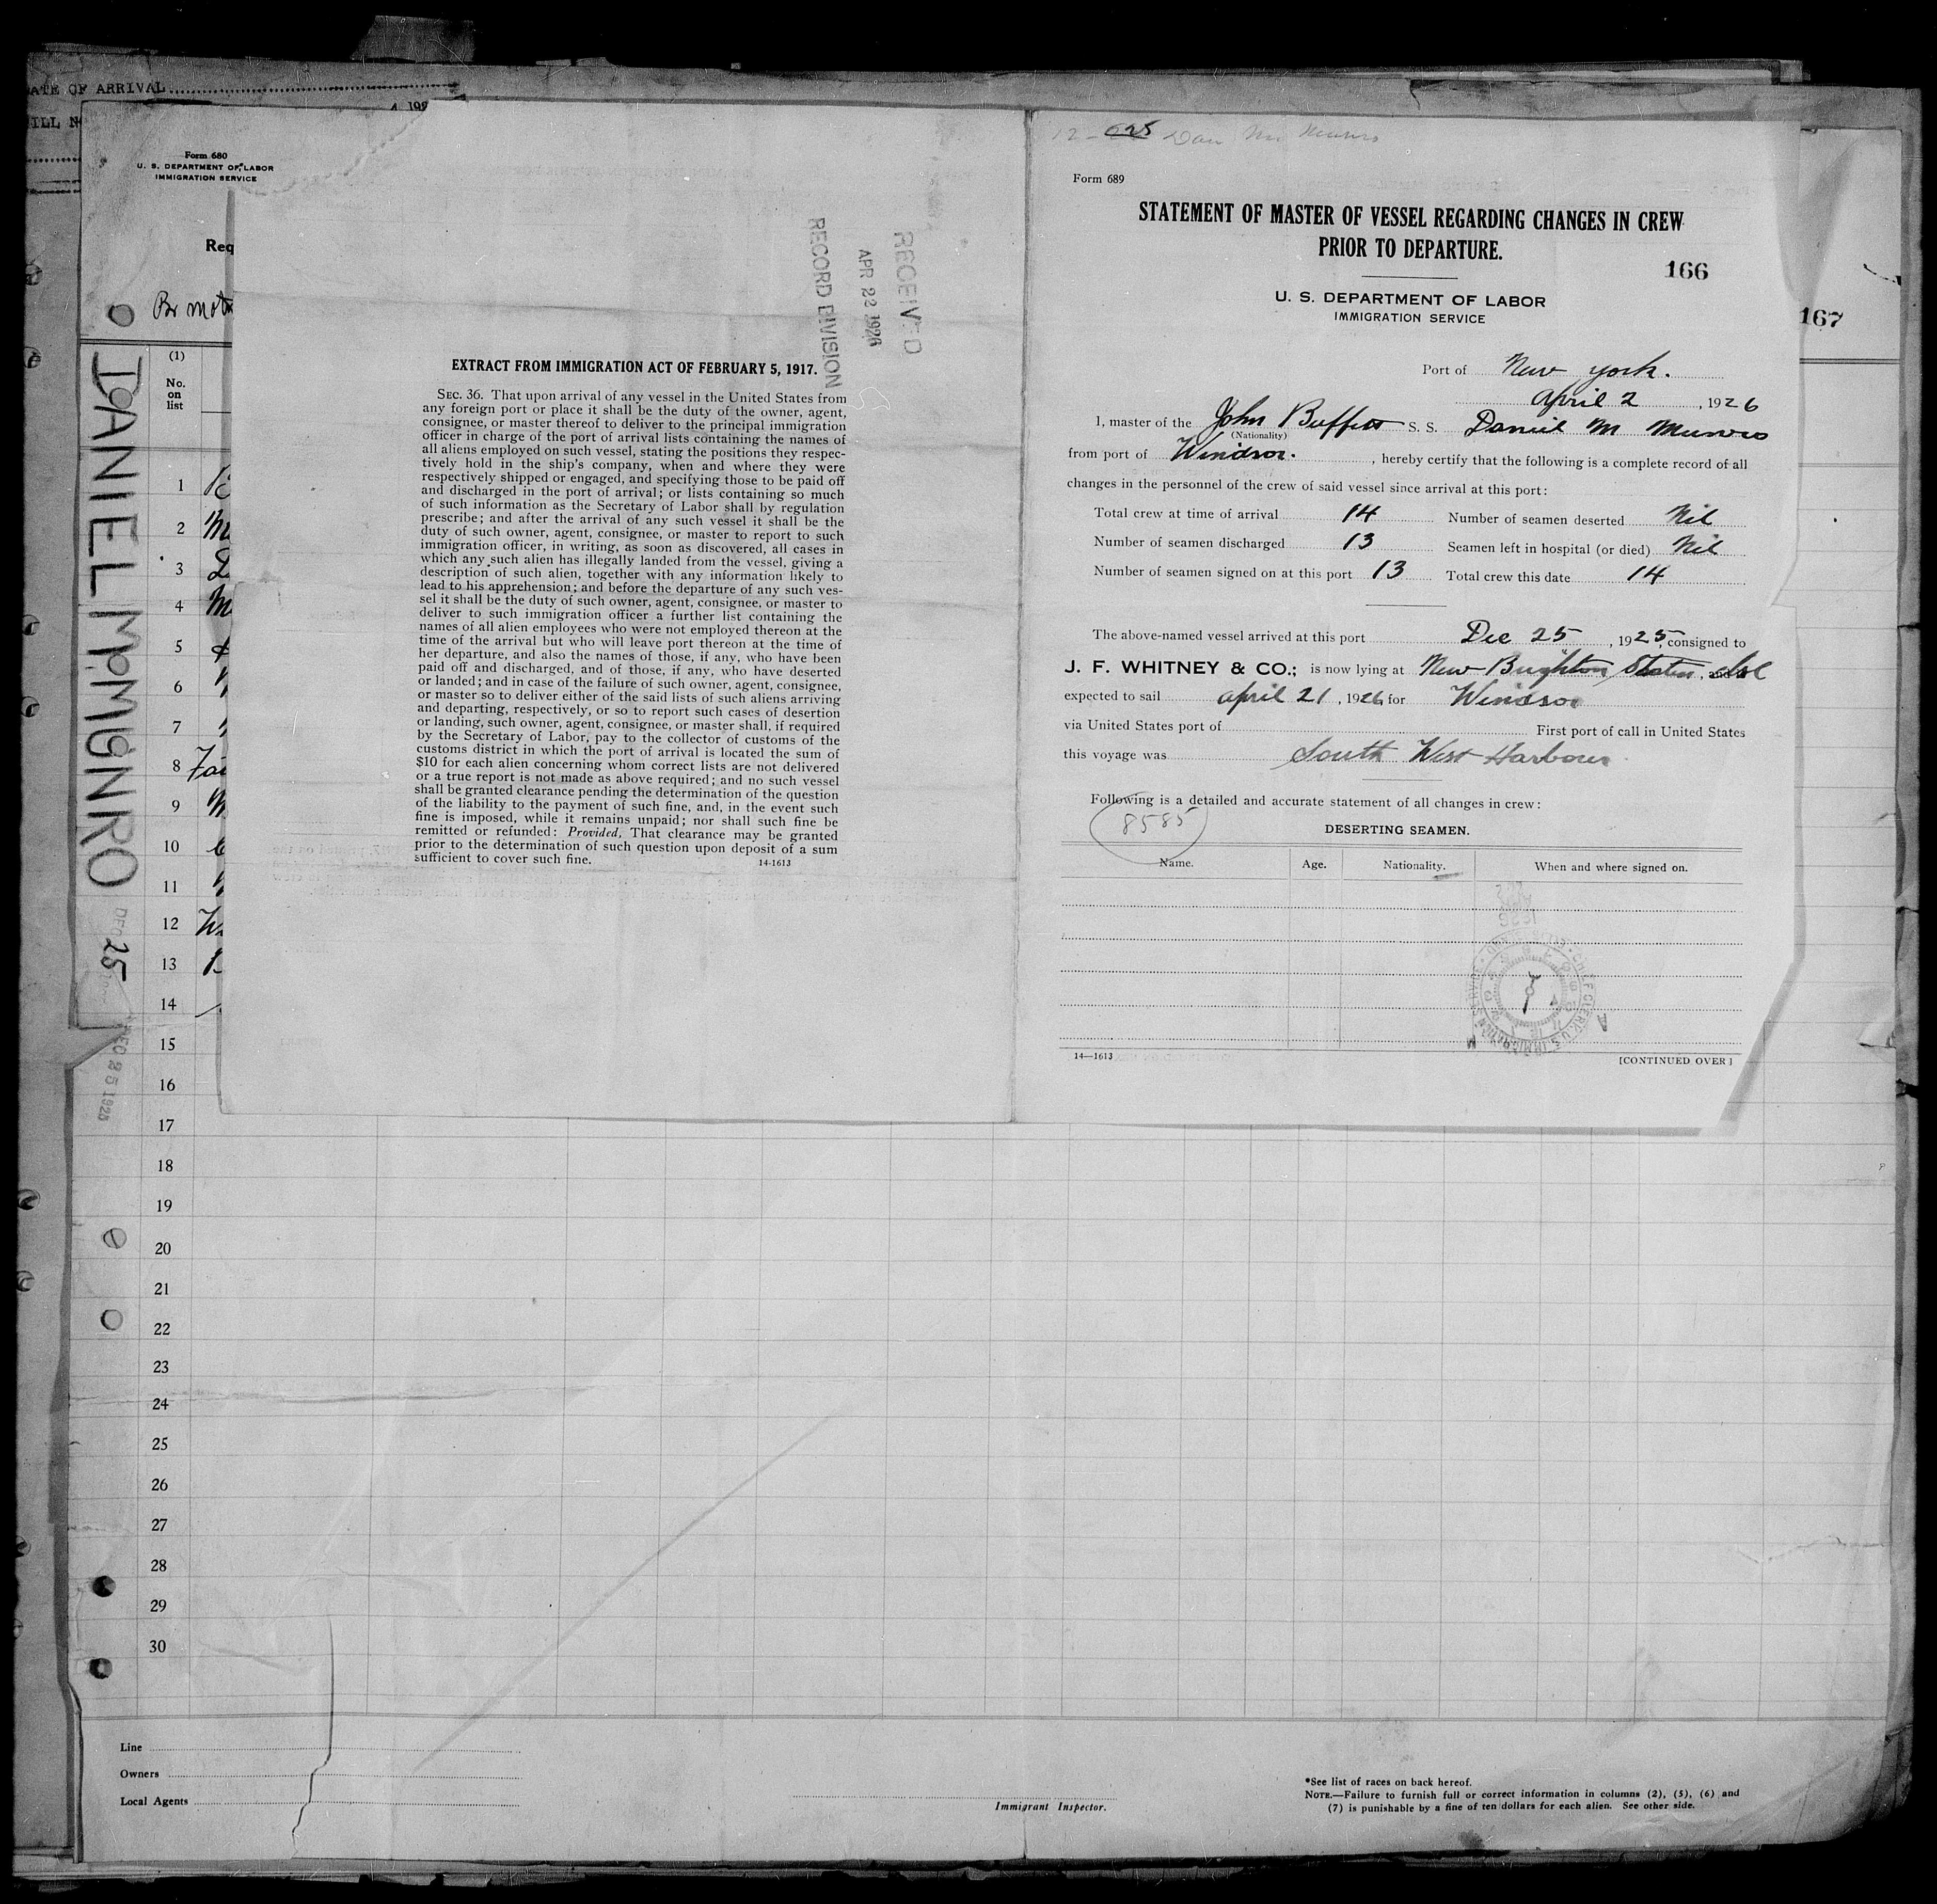 ATE OF ARRIVAL
ILL N
Form 680
U. S. DEPARTMENT OF LABOR
IMMIGRATION SERVICE
Req
Br moto
(1)
No.
on
list
DANIEL M MUNRO
DEC 25
DEC 25 1925
1
2
3
4
5
6
7
8
9
10
11
12
13
14
15
16
17
18
19
20
21
22
23
24
25
26
27
28
29
30
Line
Owners
Local Agents
Immigrant Inspector.
*See list of races on back hereof.
NOTE.—Failure to furnish full or correct information in columns (2), (5), (6) and
(7) is punishable by a fine of ten dollars for each alien. See other side.
RECEIVED
APR 22 1926
RECORD DIVISION
EXTRACT FROM IMMIGRATION ACT OF FEBRUARY 5, 1917.
SEC. 36. That upon arrival of any vessel in the United States from
any foreign port or place it shall be the duty of the owner, agent,
consignee, or master thereof to deliver to the principal immigration
officer in charge of the port of arrival lists containing the names of
all aliens employed on such vessel, stating the positions they respec-
tively hold in the ship's company, when and where they were
respectively shipped or engaged, and specifying those to be paid off
and discharged in the port of arrival; or lists containing so much
of such information as the Secretary of Labor shall by regulation
prescribe; and after the arrival of any such vessel it shall be the
duty of such owner, agent, consignee, or master to report to such
immigration officer, in writing, as soon as discovered, all cases in
which any such alien has illegally landed from the vessel, giving a
description of such alien, together with any information likely to
lead to his apprehension; and before the departure of any such ves-
sel it shall be the duty of such owner, agent, consignee, or master to
deliver to such immigration officer a further list containing the
names of all alien employees who were not employed thereon at the
time of the arrival but who will leave port thereon at the time of
her departure, and also the names of those, if any, who have been
paid off and discharged, and of those, if any, who have deserted
or landed; and in case of the failure of such owner, agent, consignee,
or master so to deliver either of the said lists of such aliens arriving
and departing, respectively, or so to report such cases of desertion
or landing, such owner, agent, consignee, or master shall, if required
by the Secretary of Labor, pay to the collector of customs of the
customs district in which the port of arrival is located the sum of
$10 for each alien concerning whom correct lists are not delivered
or a true report is not made as above required; and no such vessel
shall be granted clearance pending the determination of the question
of the liability to the payment of such fine, and, in the event such
fine is imposed, while it remains unpaid; nor shall such fine be
remitted or refunded: Provided, That clearance may be granted
prior to the determination of such question upon deposit of a sum
sufficient to cover such fine.
14-1613
Form 689
STATEMENT OF MASTER OF VESSEL REGARDING CHANGES IN CREW
PRIOR TO DEPARTURE.
166
167
U. S. DEPARTMENT OF LABOR
IMMIGRATION SERVICE
Port of New York.
April 2, 1926
I, master of the John Buffett S. S. Daniel M Munro
(Nationality)
from port of Windsor. , hereby certify that the following is a complete record of all
changes in the personnel of the crew of said vessel since arrival at this port:
Total crew at time of arrival 14 Number of seamen deserted Nil
Number of seamen discharged 13 Seamen left in hospital (or died) Nil
Number of seamen signed on at this port 13 Total crew this date 14
The above-named vessel arrived at this port Dec 25, 1925, consigned to
J. F. WHITNEY & CO.; is now lying at New Brighton, Staten Isl
expected to sail April 21, 1926 for Windsor
via United States port of First port of call in United States
this voyage was South West Harbour
Following is a detailed and accurate statement of all changes in crew:
8585
DESERTING SEAMEN.
Name. Age. Nationality. When and where signed on.
14—1613
[CONTINUED OVER]